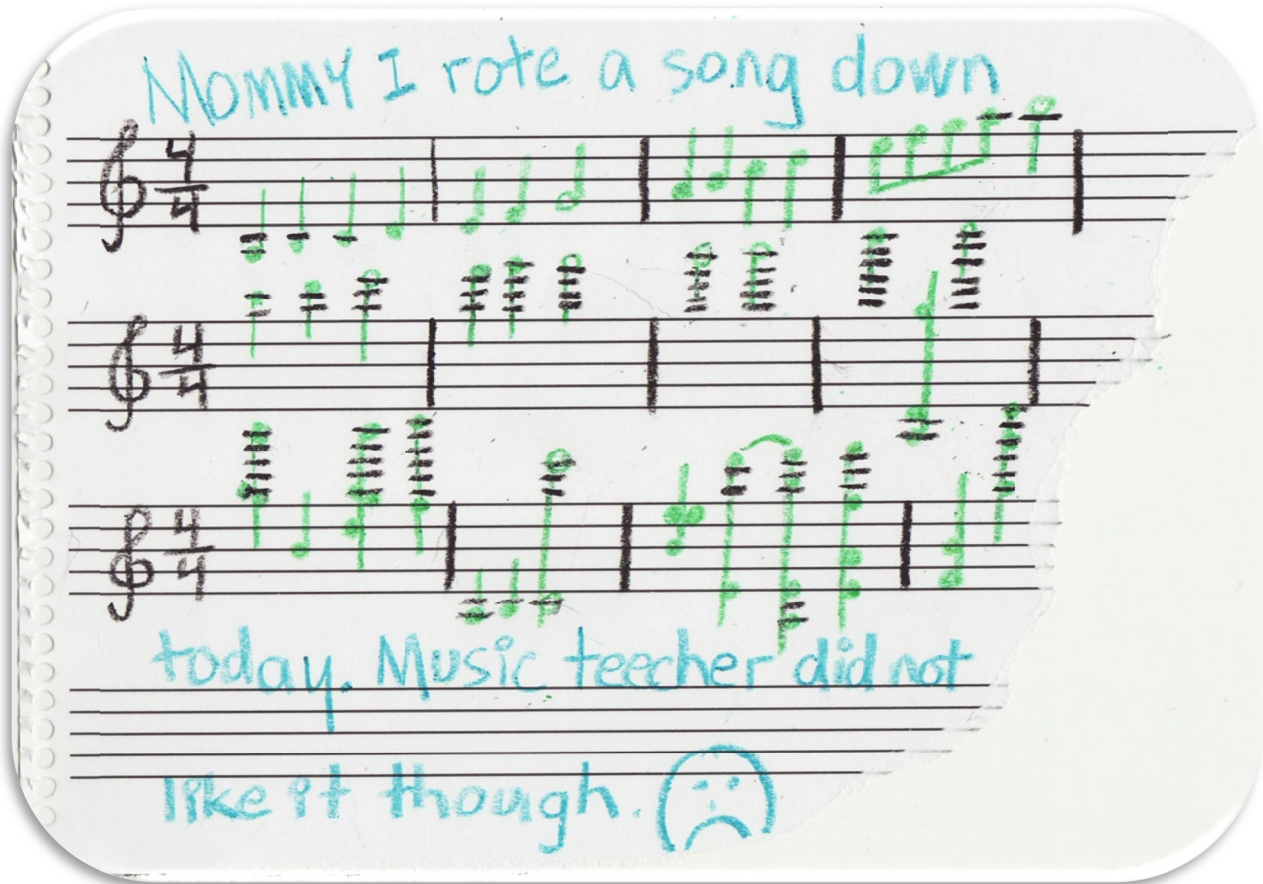 Mommy I rote a song down
4/4
4/4
4/4
today. Music teecher did not
like it though.